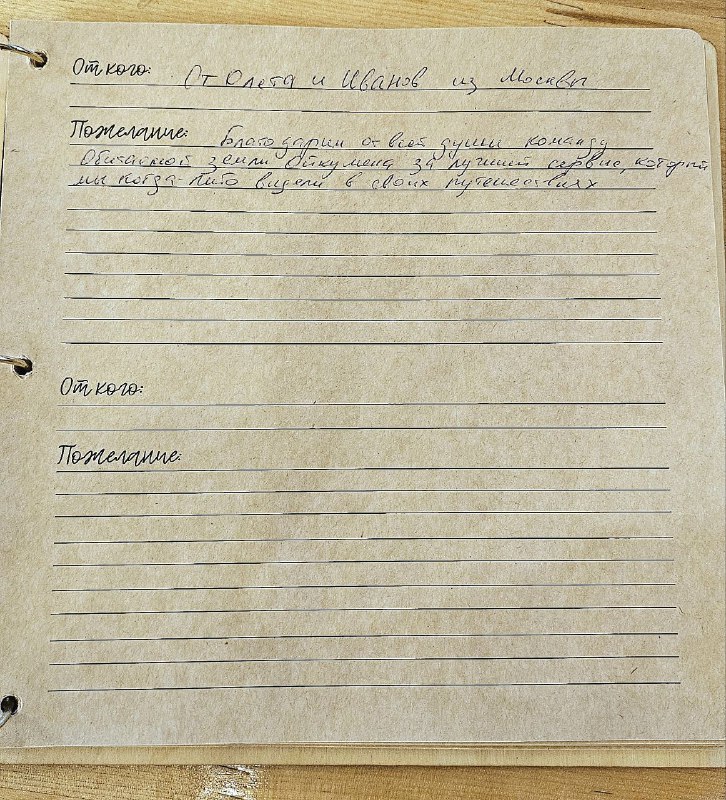 От кого: От Олега и Иванов из Москвы
Пожелание: Благодарим от всей души команду
Обитаемой земли Ойкумена за лучший сервис, который
мы когда-либо видели в своих путешествиях
От кого:
Пожелание: